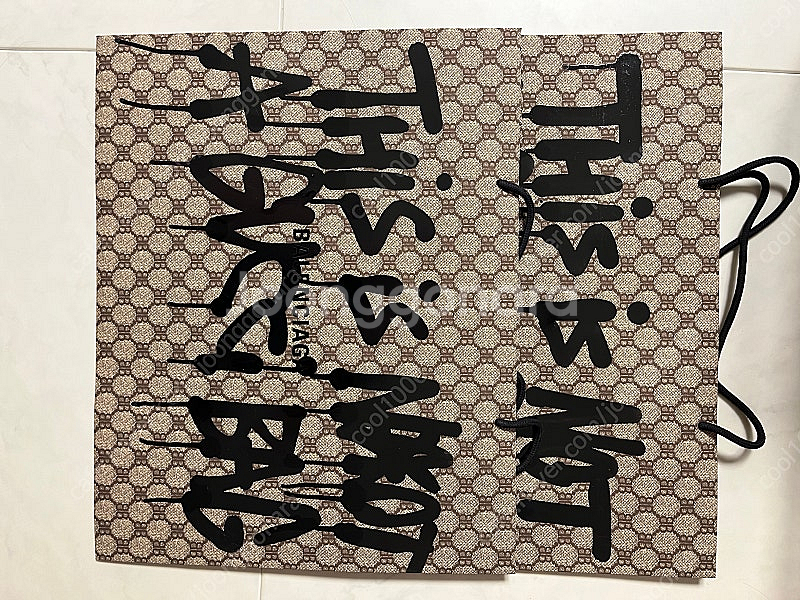 THiS iS NOT
THiS iS NOT
BALENCIAGA
A GUCCi BAG
joonggonara